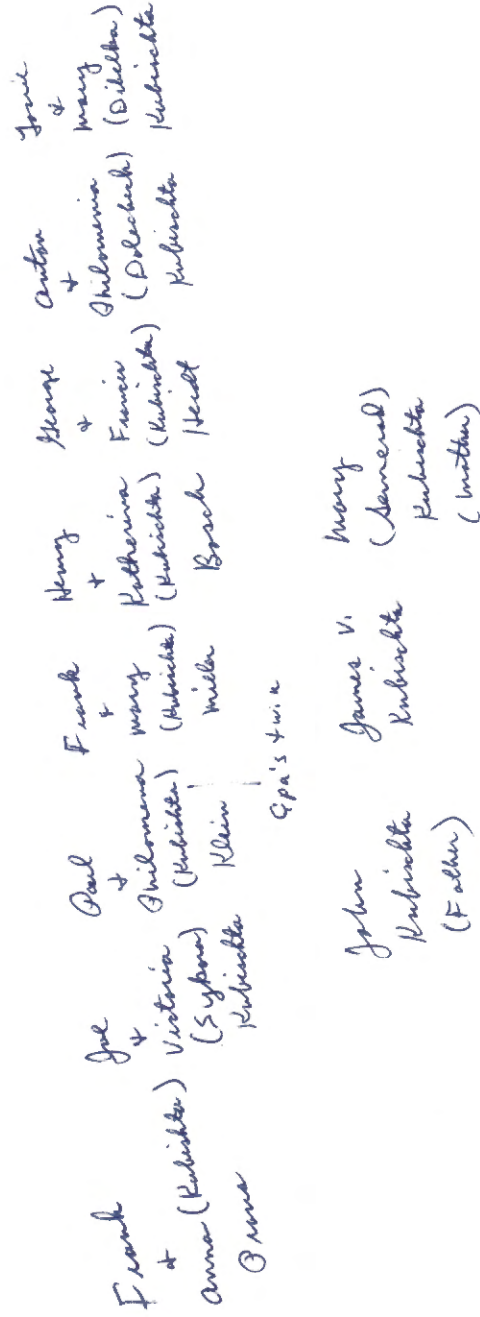 Frank
+
Anna (Kubishta)
Joe
+
Victoria
(Sykora)
Kubischta
Paul
+
Philomena
(Kubishta)
Klein
Gpa's twin
Frank
+
Mary
(Kubischta)
Miller
Henry
+
Katherina
(Kubischta)
Bosch
George
+
Francis
(Kubischta)
Heidt
Anton
+
Philomenia
(Dolecheck)
Kubischta
+
Mary
(Dibelka)
Kubischta
John
Kubischta
(Father)
James V.
Kubischta
Mary
(Semerad)
Kubischta
(Mother)